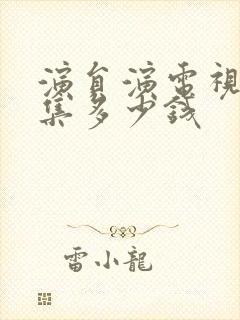 演員演電視
集多少錢
雷小龍